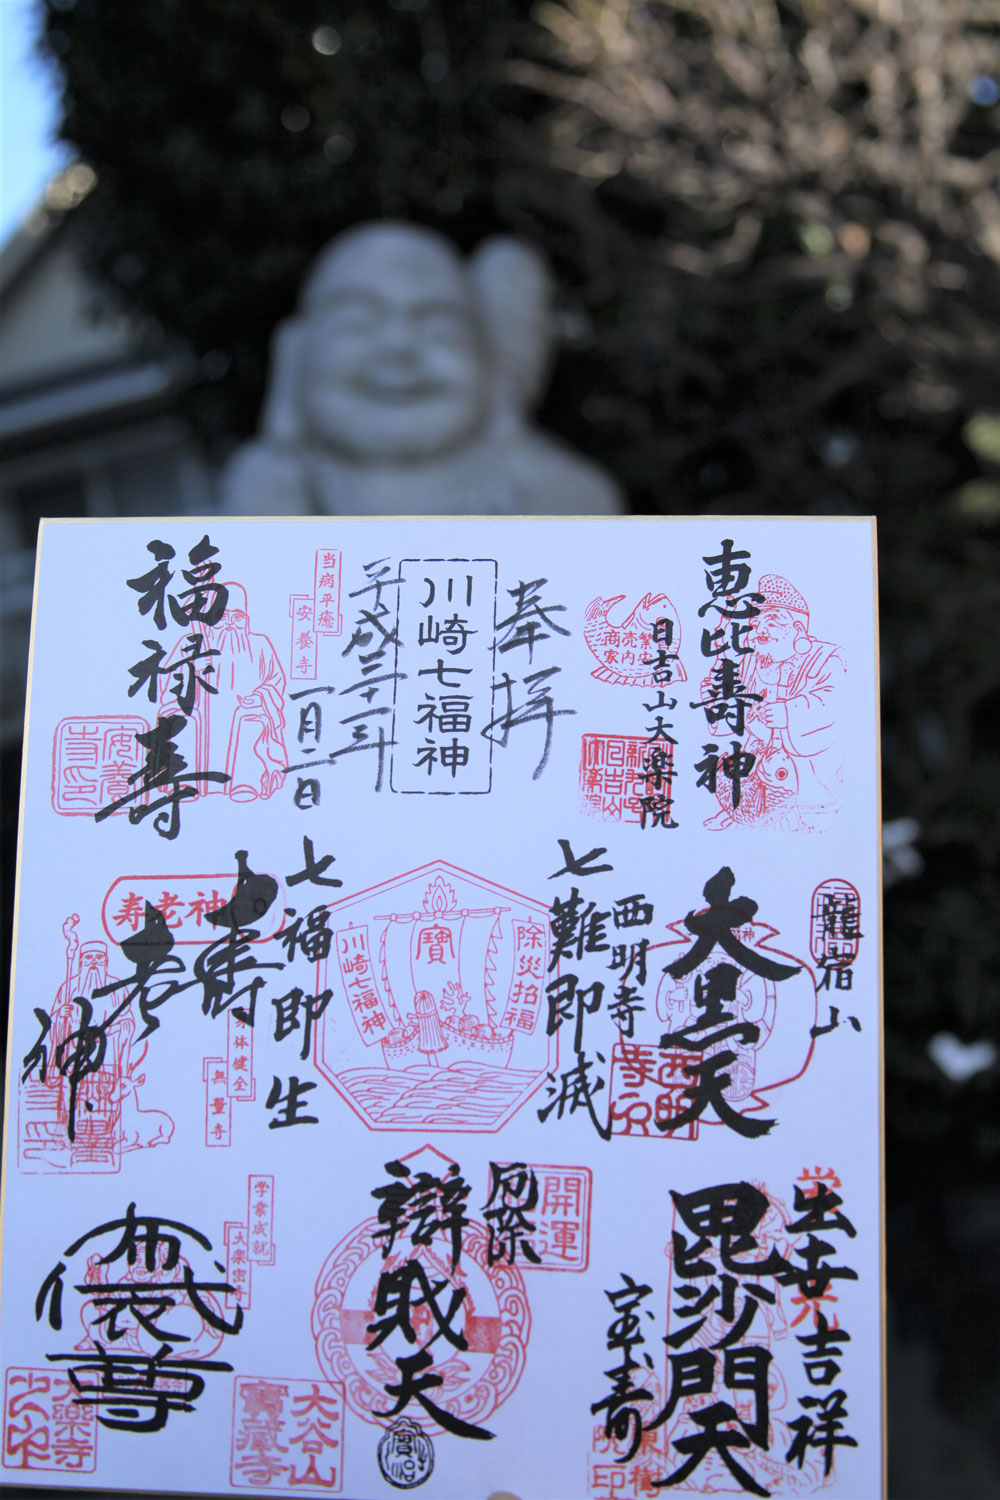 恵比寿神
日吉山大楽院
商売繁
家内安
奉拝
川崎七福神
平成三十二年
一月二日
当病平癒
安養寺
福禄寿
安養
寺印
龍宿山
大黒天
西明寺
西明
寺印
七難即滅
除災招福
寶
川崎七福神
七福即生
寿老神
寿老神
体健全
無量寺
出世吉祥
毘沙門天
宝寿
院印
開運
厄除
辯財天
大谷山
寶蔵寺
学業成就
大楽密寺
布袋尊
大樂寺